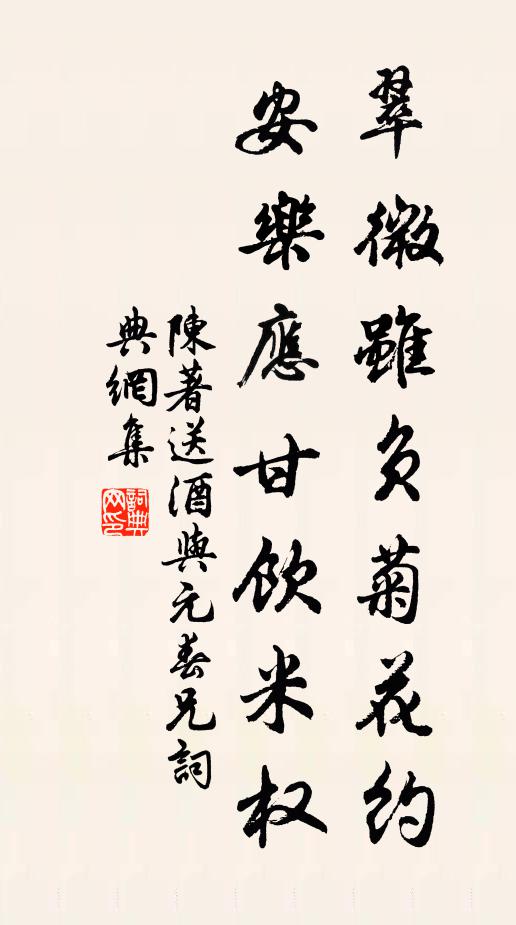 翠微雖負菊花約
安樂應甘飲米权
陳著送酒與元春兄詞
典網集
詞典網印